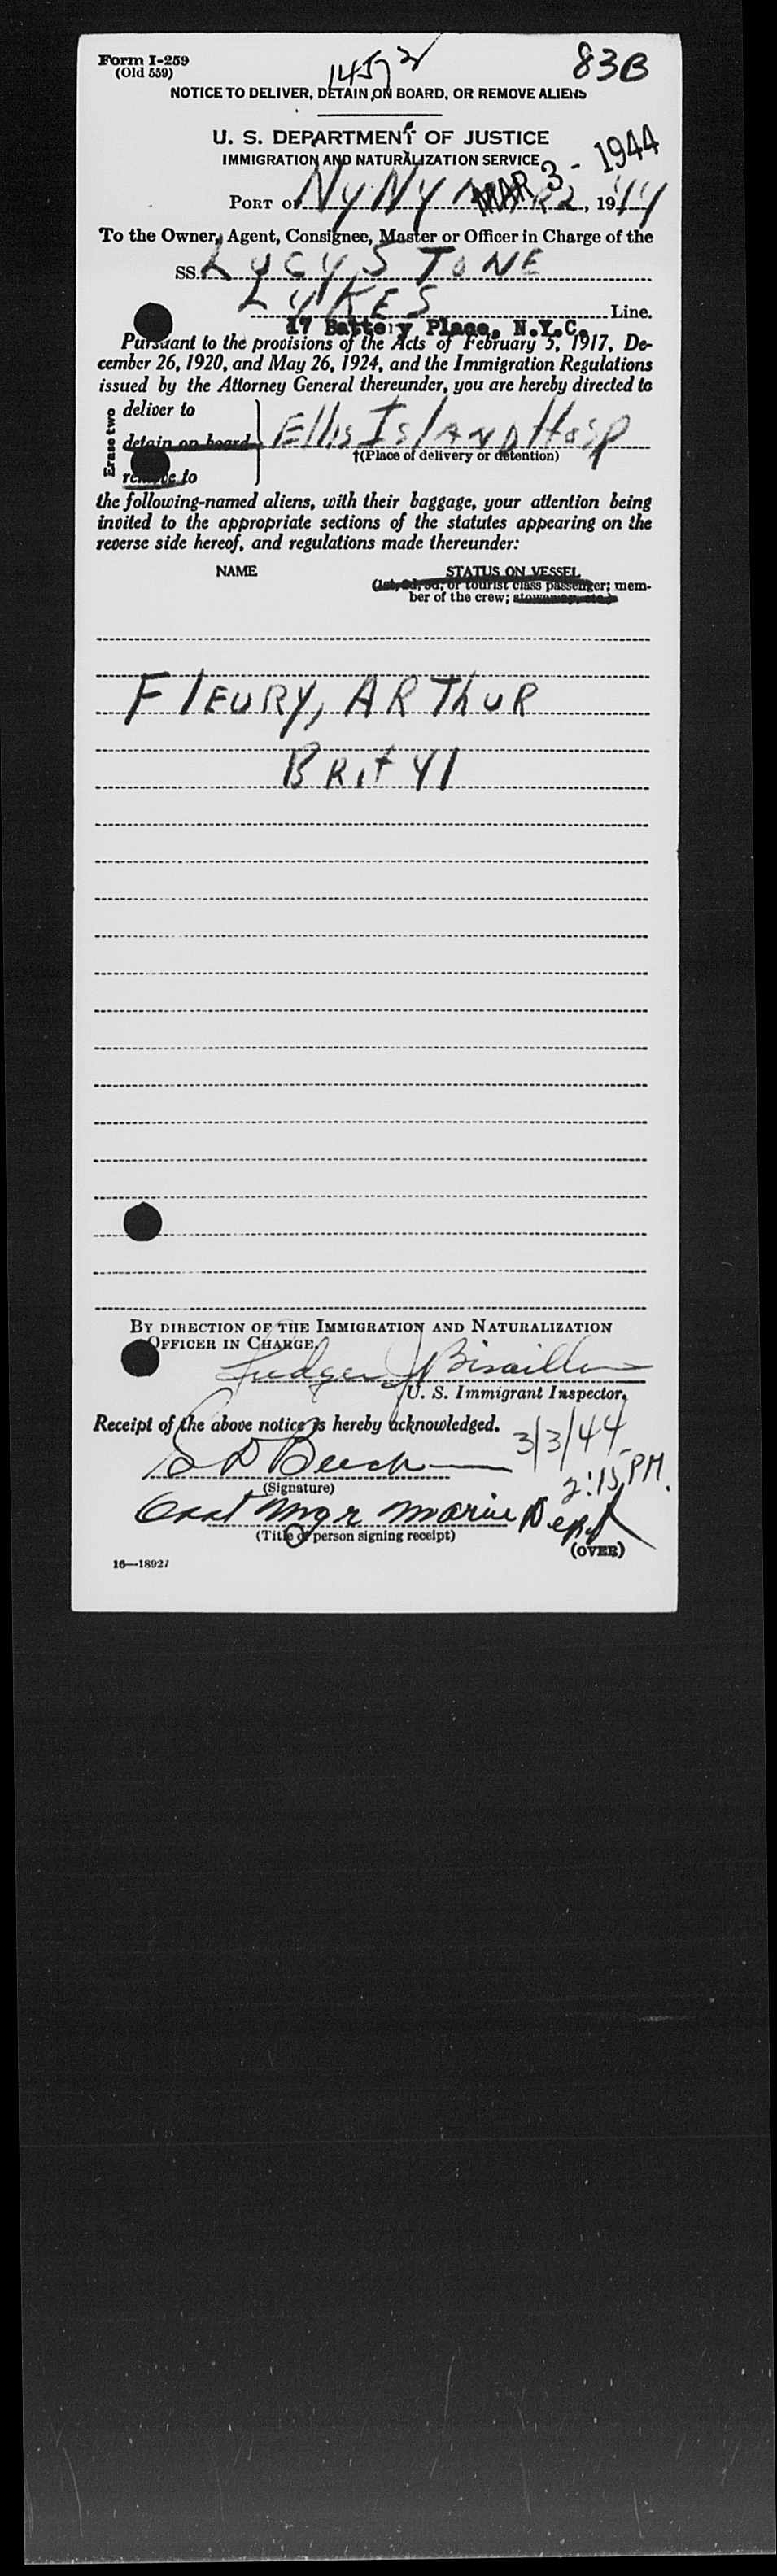 Form I-259
(Old 559)
1452
83B
NOTICE TO DELIVER, DETAIN ON BOARD, OR REMOVE ALIENS
U. S. DEPARTMENT OF JUSTICE
IMMIGRATION AND NATURALIZATION SERVICE
MAR 3 - 1944
PORT OF NY NY 2, 1944
To the Owner, Agent, Consignee, Master or Officer in Charge of the
SS. LUCY STONE
LYKES Line.
17 Battery Place, N.Y.C.
Pursuant to the provisions of the Acts of February 5, 1917, De-
cember 26, 1920, and May 26, 1924, and the Immigration Regulations
issued by the Attorney General thereunder, you are hereby directed to
Erase two
deliver to
detain on board
remove to
Ellis Island Hosp
†(Place of delivery or detention)
the following-named aliens, with their baggage, your attention being
invited to the appropriate sections of the statutes appearing on the
reverse side hereof, and regulations made thereunder:
NAME STATUS ON VESSEL
(1st, 2d, 3d, or tourist class passenger; mem-
ber of the crew; stowaway, etc.)
FlEURY, ARThUR
BRit 41
BY DIRECTION OF THE IMMIGRATION AND NATURALIZATION
OFFICER IN CHARGE.
Ludger J Bisaillon
U. S. Immigrant Inspector.
Receipt of the above notice is hereby acknowledged.
3/3/44
2:15 PM.
S D Beech
(Signature)
Mgr Marine Dept
(Title of person signing receipt)
(OVER)
16—18927